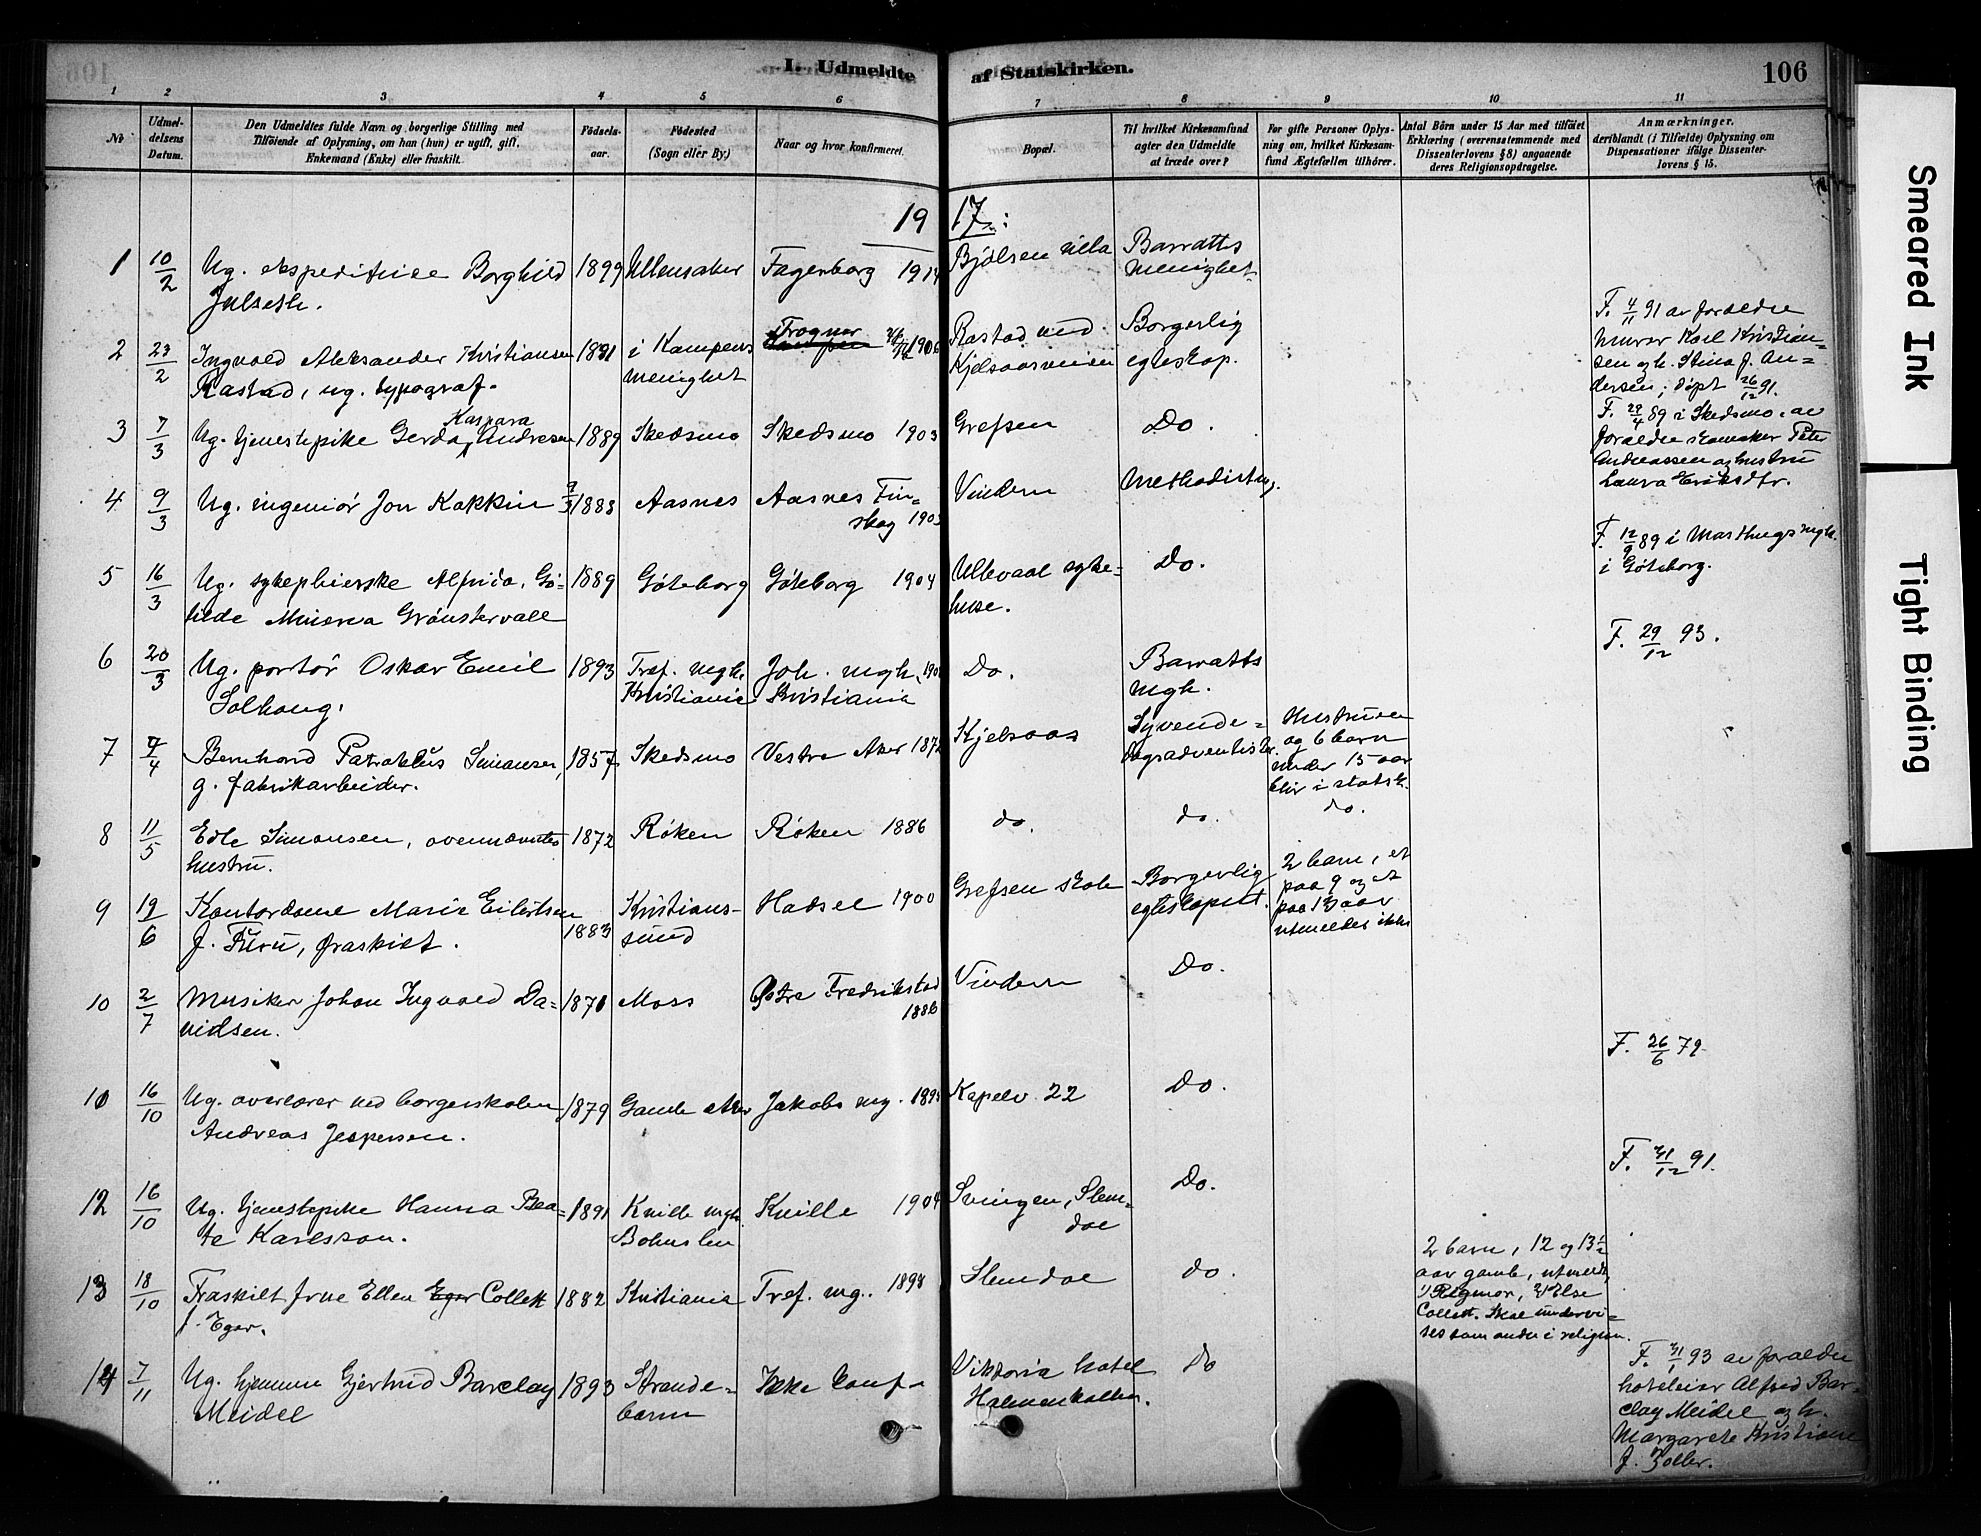 L. Udmeldte af Statskirken. 106
1 2 3 4 5 6 7 8 9 10 11
No
Udmel-
delsens
Datum.
Den Udmeldtes fulde Navn og borgerlige Stilling med
Tilføiende af Oplysning, om han (hun) er ugift, gift,
Enkemand (Enke) eller fraskilt.
Fødsels-
aar.
Fødested
(Sogn eller By.)
Naar og hvor konfirmeret.
Bopæl.
Til hvilket Kirkesamfund
agter den Udmeldte
at træde over?
For gifte Personer Oplys-
ning om, hvilket Kirkesam-
fund Ægtefællen tilhører.
Antal Børn under 15 Aar med tilføiet
Erklæring (overensstemmende med
Dissenterlovens § 8) angaaende
deres Religionsopdragelse.
Anmærkninger,
deriblandt (i Tilfælde) Oplysning om
Dispensationer ifølge Dissenter-
lovens § 15.
1917:
1 10/2 Ug. ekspeditrice Borghild 1899 Ullensaker Fagerborg 1914 Bjølsen villa Barratts
Julseth. menighet
2 23/2 Ingvald Aleksander Kristiansen 1891 i Kampens Frogner 1906 Rastad ved Borgerlig
Rastad, ug. typograf. menighet Kjelsaasveien egteskap.
F. 4/11 91 av foreldre
murer Karl Kristian-
sen og h. Stina f. An-
dersen; døpt 26/12 91.
3 7/3 Ug. tjenestepike Gerda Kaspara Andresen 1889 Skedsmo Skedsmo 1903 Grefsen Do.
F. 29/4 89 i Skedsmo av
foreldre skomaker Peter
Andreassen og hustru
Laura Eriksdtr.
4 9/3 Ug. ingeniør Jon Kakkin 1888 Aasnes Aasnes Fin-
skog 1903 Vindern Methodistmg.
5 16/3 Ug. sykepleierske Alfrida Gö- 1889 Göteborg Göteborg 1904 Ullevaal syke- Do.
hilde Minerva Grönstervall huse.
F. 12/9 89 i Masthugs mgh.
i Göteborg.
6 20/3 Ug. portør Oskar Emil 1893 Tref. mgh. Joh. mgh. Do. Barratts
Solhaug. Kristiania Kristiania mgh.
F. 29/12 93.
7 Bernhard Patroklus Simonsen, 1857 Skedsmo Vestre Aker 1872 Kjelsaas Syvende-
g. fabrikarbeider. dagsadventister.
Hustruen
og 6 barn
under 15 aar
blir i statsk.
8 11/5 Edle Simonsen, ovennævntes 1872 Røken Røken 1886 do. do. do.
hustru.
9 19/6 Kontordame Marie Eilertsen 1883 Kristians- Hadsel 1900 Grefsen skole Borgerlig
f. Furu, fraskilt. sund egteskapet.
2 barn, et
paa 9 og et
paa 13 aar
utmeldes ikke
10 2/7 Musiker Johan Ingvald Da- 1870 Moss Østre Fredrikstad Vindern Do.
vidsen. 1886
11 16/10 Ug. overlærer ved borgerskolen, 1879 Gamle Aker Jakobs mg. Kapelv. 22 Do.
Andreas Jespersen.
F. 26/6 79.
12 16/10 Ug. tjenestepike Hanna Bea- 1891 Kville mgh. Kville 1904 Svingen, Slem- Do.
te Karlsson. Bohuslen dal
F. 31/12 91.
13 18/10 Fraskilt frue Ellen Eger Collett 1882 Kristiania Tref. mg. 1898 Slemdal do.
f. Eger.
2 barn, 12 og 13½
aar gamle, utmeldt,
1) Rigmor, 2) Else
Collett. Skal undervi-
ses som andre i religion.
14 7/11 Ug. hjemme Gjertrud Barclay 1893 Strande- Ikke konf. Viktoria hotel do
Meidel barm Holmenkollen.
F. 31/1 93 av foreldre
hoteleier Alfred Bar-
clay Meidel og h.
Margarete Kristiane
f. Zoller.
Smeared Ink
Tight Binding